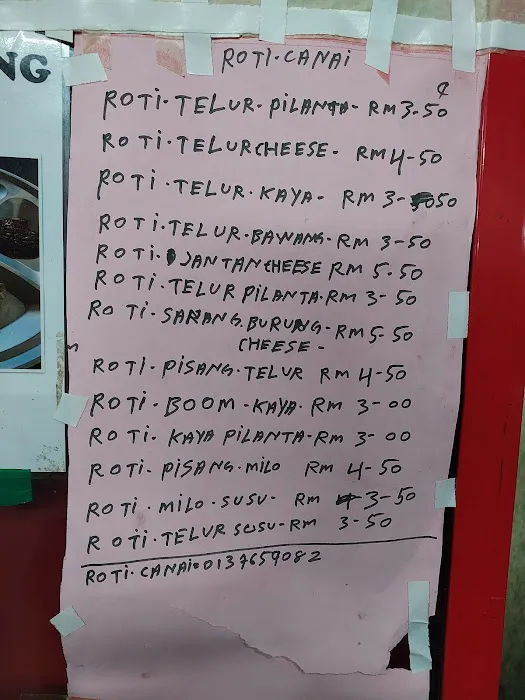 NG
ROTI.CANAI
¢
ROTI.TELUR.PILANTA-RM3-50
ROTI.TELURCHEESE-RM4-50
ROTI.TELUR.KAYA-RM 3-50
ROTI.TELUR.BAWANG-RM 3-50
ROTI.JANTANCHEESE RM 5.50
ROTI.TELUR PILANTA.RM 3-50
ROTI-SARANG.BURUNG-RM5-50
CHEESE-
ROTI-PISANG.TELUR RM 4-50
ROTI-BOOM-KAYA-RM 3-00
ROTI.KAYA PILANTA-RM 3-00
ROTI-PISANG.MILO RM 4-50
ROTI.MILO-SUSU-RM 3-50
ROTI.TELUR SUSU-RM 3-50
ROTI.CANAI=0137659082